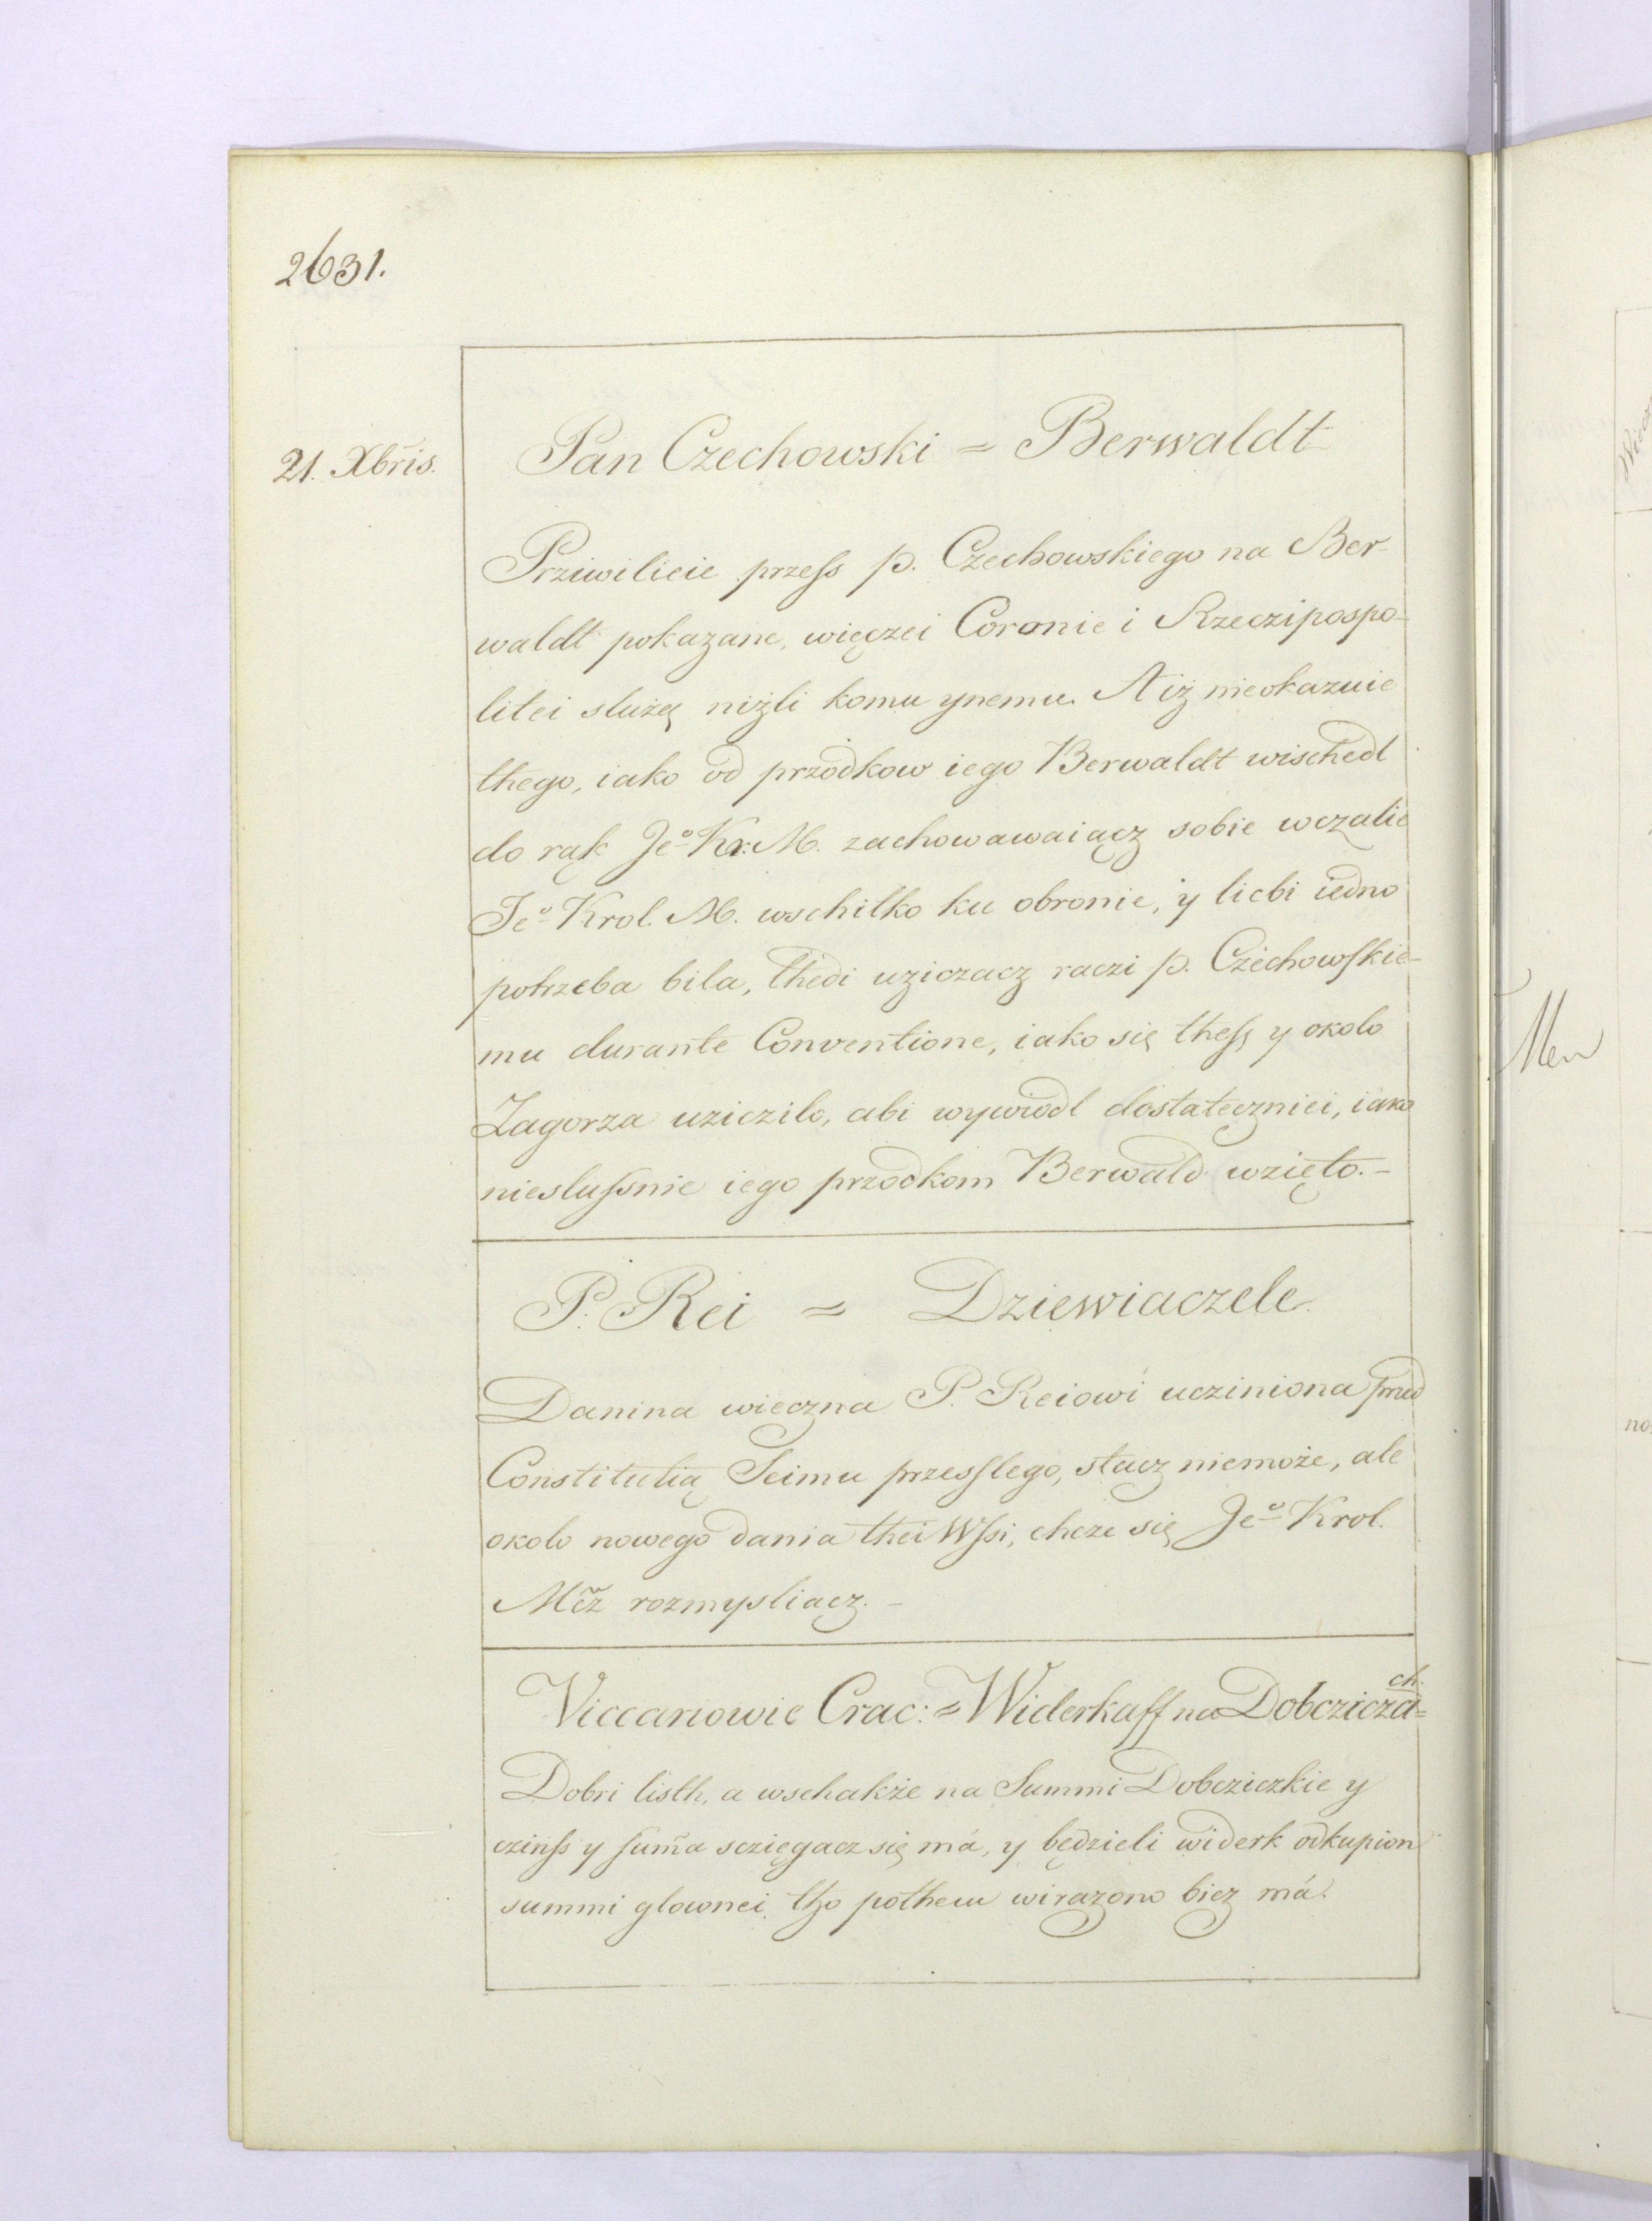 2631.
21. Xbris.
Pan Czechowski = Berwaldt
Prziwilieie przeſs p. Czechowskiego na Ber-
waldt pokazane, więczei Coronie i Rzeczipospo-
litei służą niżli komu ynemu. A iż nieokazuie
thego, iako od przodkow iego Berwaldt wischedl
do rąk Jeº Kr: M. zachowawaiącz sobie wczalie
Jeº Krol. M. wschitko ku obronie, y liebi iedno
potrzeba bila, thedi uziczacz raczi p. Czechowſkie-
mu durante Conventione, iako się theſs y okolo
Zagorza uziczilo, abi wywiodl dostateczniei, iako
niesluſsnie iego przodkom Berwald wzięto.-
P. Rei = Dziewiaczele.
Danina wieczna P. Reiowi ucziniona przed
Constitutią Seimu przesſlego, stacz niemoże, ale
okolo nowego dania thei Wſsi, chcze się Jeº Krol.
Mcz̃ rozmysliacz.-
Viccariowie Crac: = Widerkaff na Dobczicza=ch.
Dobri listh, a wschakże na Summi Dobcziczkie y
czinſs y sum̃a sczięgacz się má, y będzieli widerk odkupion
summi glownei, tho pothem wirazono bicz má.
Men
no